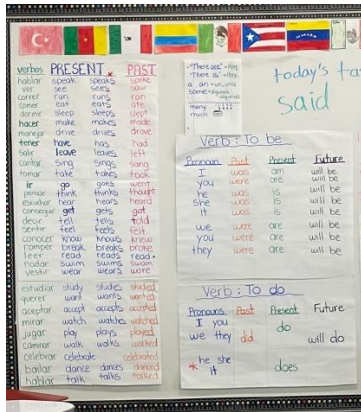 verbos PRESENT PAST
hablar speak speaks spoke
ver see sees saw
correr run runs ran
comer eat eats ate
dormir sleep sleeps slept
hacer make makes made
manejar drive drives drove
tener have has had
salir leave leaves left
cantar sing sings sang
tomar take takes took
ir go goes went
pensar think thinks thought
escuchar hear hears heard
conseguir get gets got
decir tell tells told
sentir feel feels felt
conocer know knows knew
romper break breaks broke
leer read reads read
nadar swim swims swam
vestir wear wears wore
estudiar study studies studied
querer want wants wanted
aceptar accept accepts accepted
mirar watch watches watched
jugar play plays played
caminar walk walks walked
celebrar celebrate celebrated
bailar dance dances danced
hablar talk talks talked
"There are"
"There is"
a, an
some
many
much
today's ta
said
Verb: To be
Pronoun Past Present Future
I was am will be
you were are will be
he was is will be
she was is will be
it was is will be
we were are will be
you were are will be
they were are will be
Verb: To do
Pronouns Past Present Future
I you
we they did do will do
* he she
it does